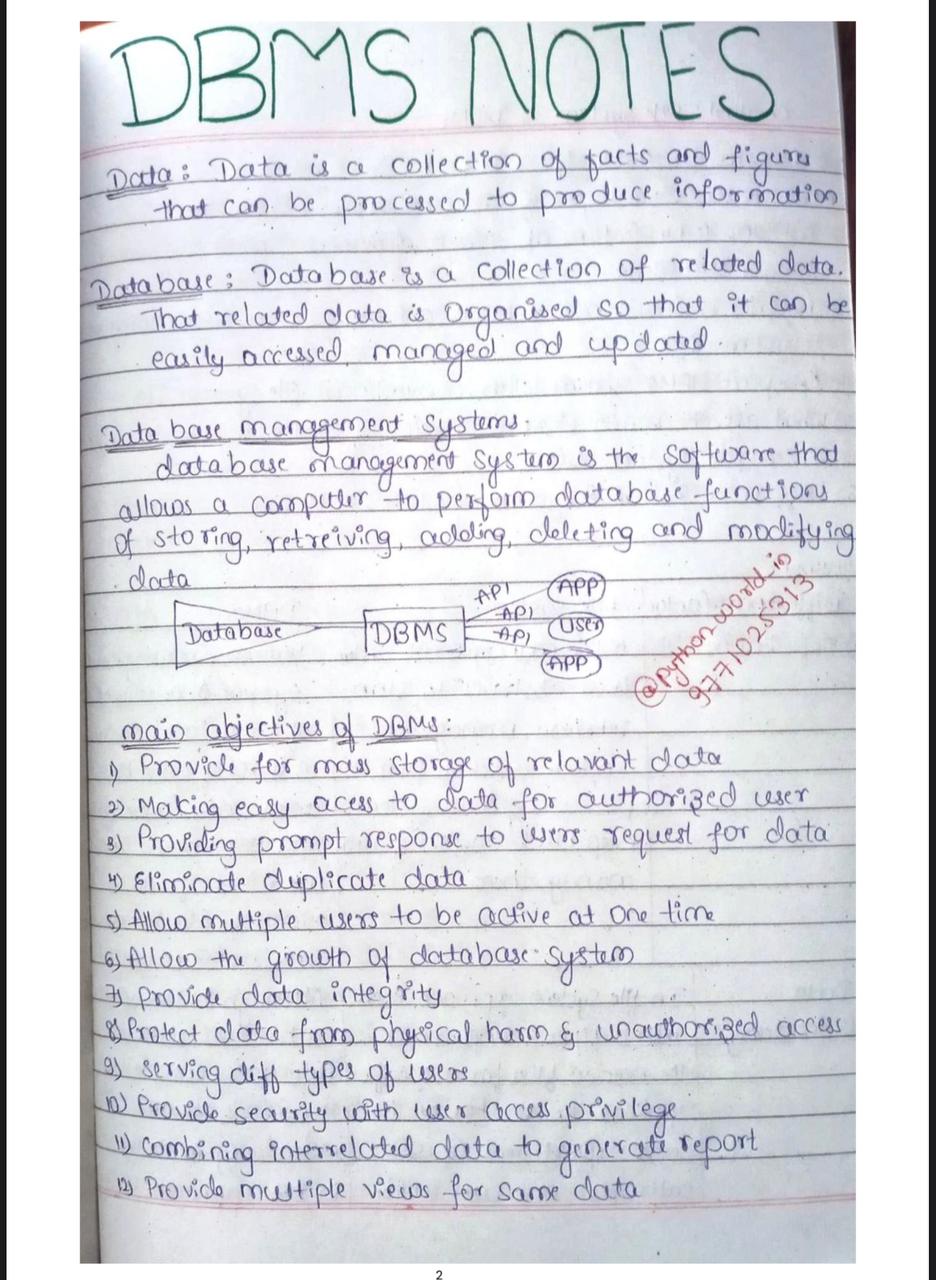 DBMS NOTES
Data : Data is a collection of facts and figures
that can be processed to produce information
Database : Database is a collection of related data.
That related data is Organised so that it can be
easily accessed, managed and updated.
Data base management systems.
database management system is the software that
allows a computer to perform database functions
of storing, retreiving, adding, deleting and modifying
data
Database
DBMS
API
API
API
APP
User
APP
@python.world_in
9771025313
main abjectives of DBMS :
1) Provide for mass storage of relavant data
2) Making easy acess to data for authorized user
3) Providing prompt response to users request for data
4) Eliminate duplicate data
5) Allow multiple users to be active at one time
6) Allow the growth of database system
7) provide data integrity
8) Protect data from physical harm & unauthorized access
9) serving diff types of users
10) Provide security with user access privilege
11) combining interrelated data to generate report
12) Provide multiple views for same data
2